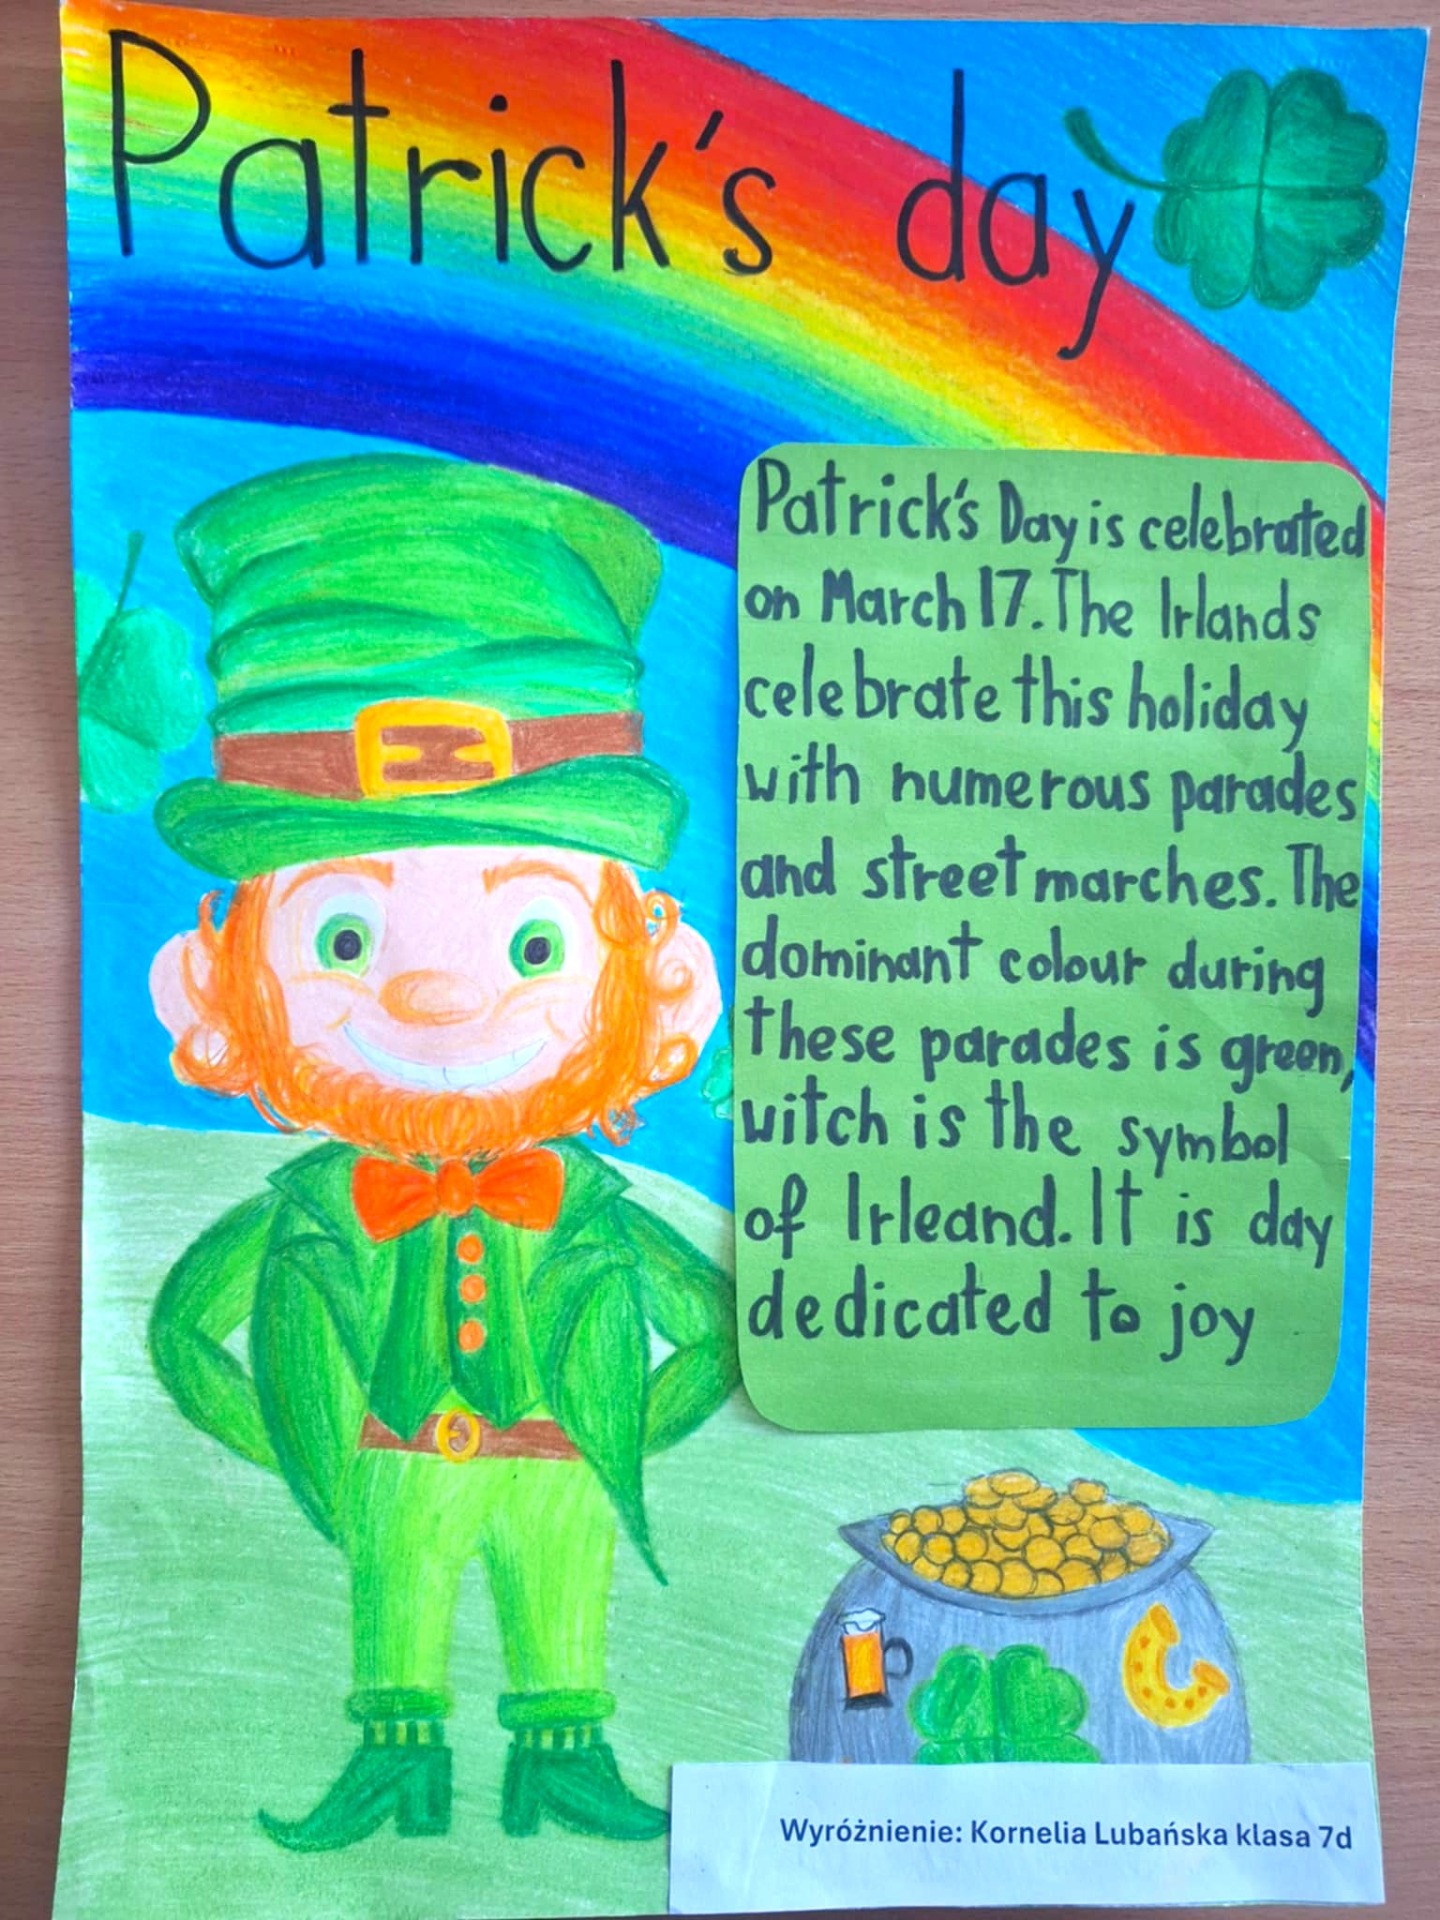 Patrick's day
Patrick's Day is celebrated
on March 17. The Irlands
celebrate this holiday
with numerous parades
and street marches. The
dominant colour during
these parades is green,
witch is the symbol
of Irleand. It is day
dedicated to joy
Wyróżnienie: Kornelia Lubańska klasa 7d